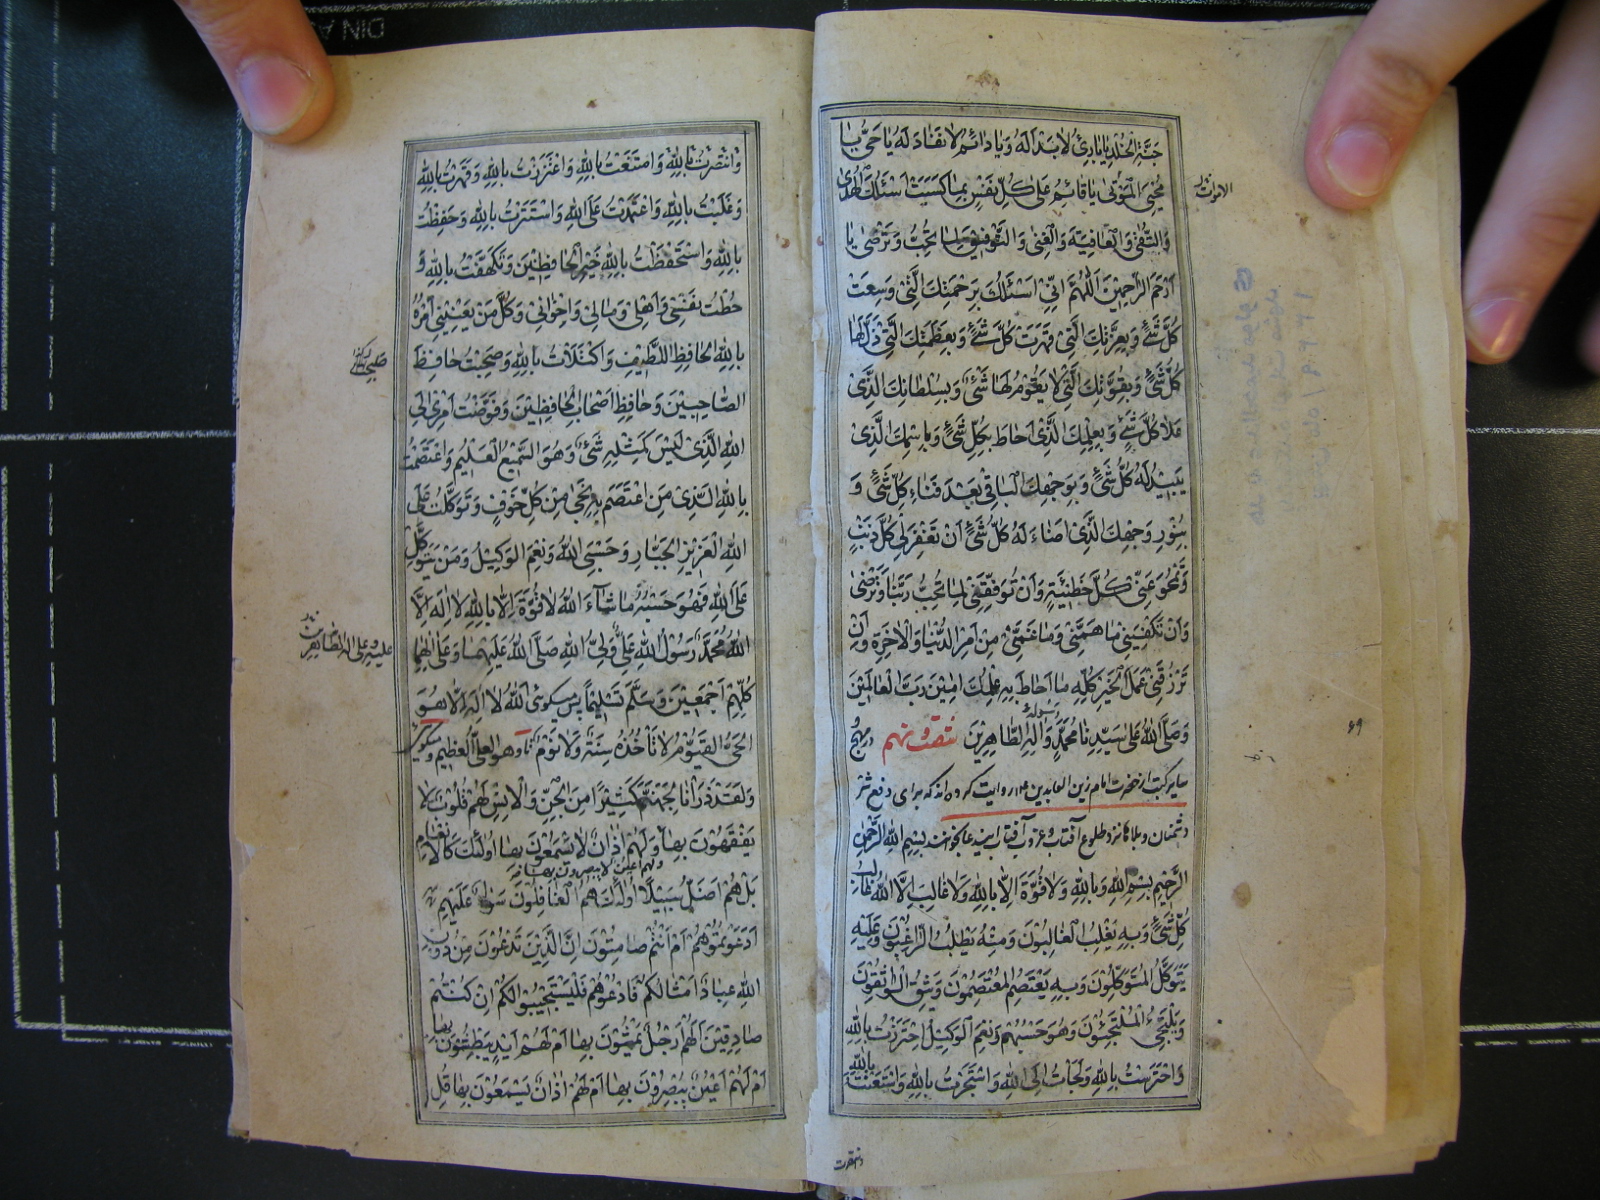 جنة الخلد يا بادئ لا بد له ويا دائم لا نفاد له يا حي يا
محيي الموتى يا قائم على كل نفس بما كسبت اسئلك الهدى
والتقى والعافية والغنى والتوفيق لما تحب وترضى يا
ارحم الراحمين اللهم اني اسئلك برحمتك التي وسعت
كل شئ وبعزتك التي قهرت كل شئ وبعظمتك التي ذل لها
كل شئ وبقوتك التي لا يقوم لها شئ وبسلطانك الذي
علا كل شئ وبعلمك الذي احاط بكل شئ وباسمك الذي
يبيد له كل شئ وبوجهك الباقي بعد فناء كل شئ و
بنور وجهك الذي اضاء له كل شئ ان تغفر لي كل ذنب
وتمحو عني كل خطيئة وان توفقني لما تحب ربنا وترضى
وان تكفيني ما همني وما غمني من امر الدنيا والاخرة وان
ترزقني عمل الخير كله ما احاط به علمك امين رب العالمين
وصلى الله على سيدنا محمد رسوله واله الطاهرين
از حضرت امام زين العابدين روايت كرده اند كه براى دفع شر
دشمنان وبلاها نزد طلوع آفتاب وغروب آفتاب اين دعا بخوانند بسم الله الرحمن
الرحيم بسم الله وبالله ولا قوة الا بالله ولا غالب الا الله غالب
كل شئ وبه يغلب الغالبون ومنه يطلب الراغبون وعليه
يتوكل المتوكلون وبه يعتصم المعتصمون ويثق الواثقون
ويلتجئ الملتجئون وهو حسبهم ونعم الوكيل احترزت بالله
واحترست بالله ولجأت الى الله واستجرت بالله واستعنت بالله
وانتصرت
وانتصرت بالله وامتنعت بالله واعتززت بالله وقهرت بالله
وغلبت بالله واعتمدت على الله واستترت بالله وحفظت
بالله واستحفظت بالله خير الحافظين وتكهفت بالله و
حطت نفسي واهلي ومالي واخواني وكل من يعنيني امره
بالله الحافظ اللطيف واكتلات بالله وصحبت حافظ
الصاحبين وحافظ اصحاب الحافظين وفوضت امري الى
الله الذي ليس كمثله شئ وهو السميع العليم واعتصمت
بالله الذي من اعتصم به نجى من كل خوف وتوكلت على
الله العزيز الجبار وحسبي الله ونعم الوكيل ومن يتوكل
على الله فهو حسبه ما شاء الله لا قوة الا بالله لا اله الا
الله محمد رسول الله علي ولي الله صلى الله عليهما وعلى الهما
كلهم اجمعين وسلم تسليما پس ميگوئى الله لا اله الا هو
الحي القيوم لا تأخذه سنة ولا نوم تا وهو العلي العظيم وميگوئى
ولقد ذرانا لجهنم كثيرا من الجن والانس لهم قلوب لا
يفقهون بها ولهم اعين لا يبصرون بها ولهم اذان لا يسمعون بها اولئك كالانعام
بل هم اضل سبيلا اولئك هم الغافلون سواء عليهم
ادعوتموهم ام انتم صامتون ان الذين تدعون من دون
الله عباد امثالكم فادعوهم فليستجيبوا لكم ان كنتم
صادقين الهم ارجل يمشون بها ام لهم ايد يبطشون بها
ام لهم اعين يبصرون بها ام لهم اذان يسمعون بها قل